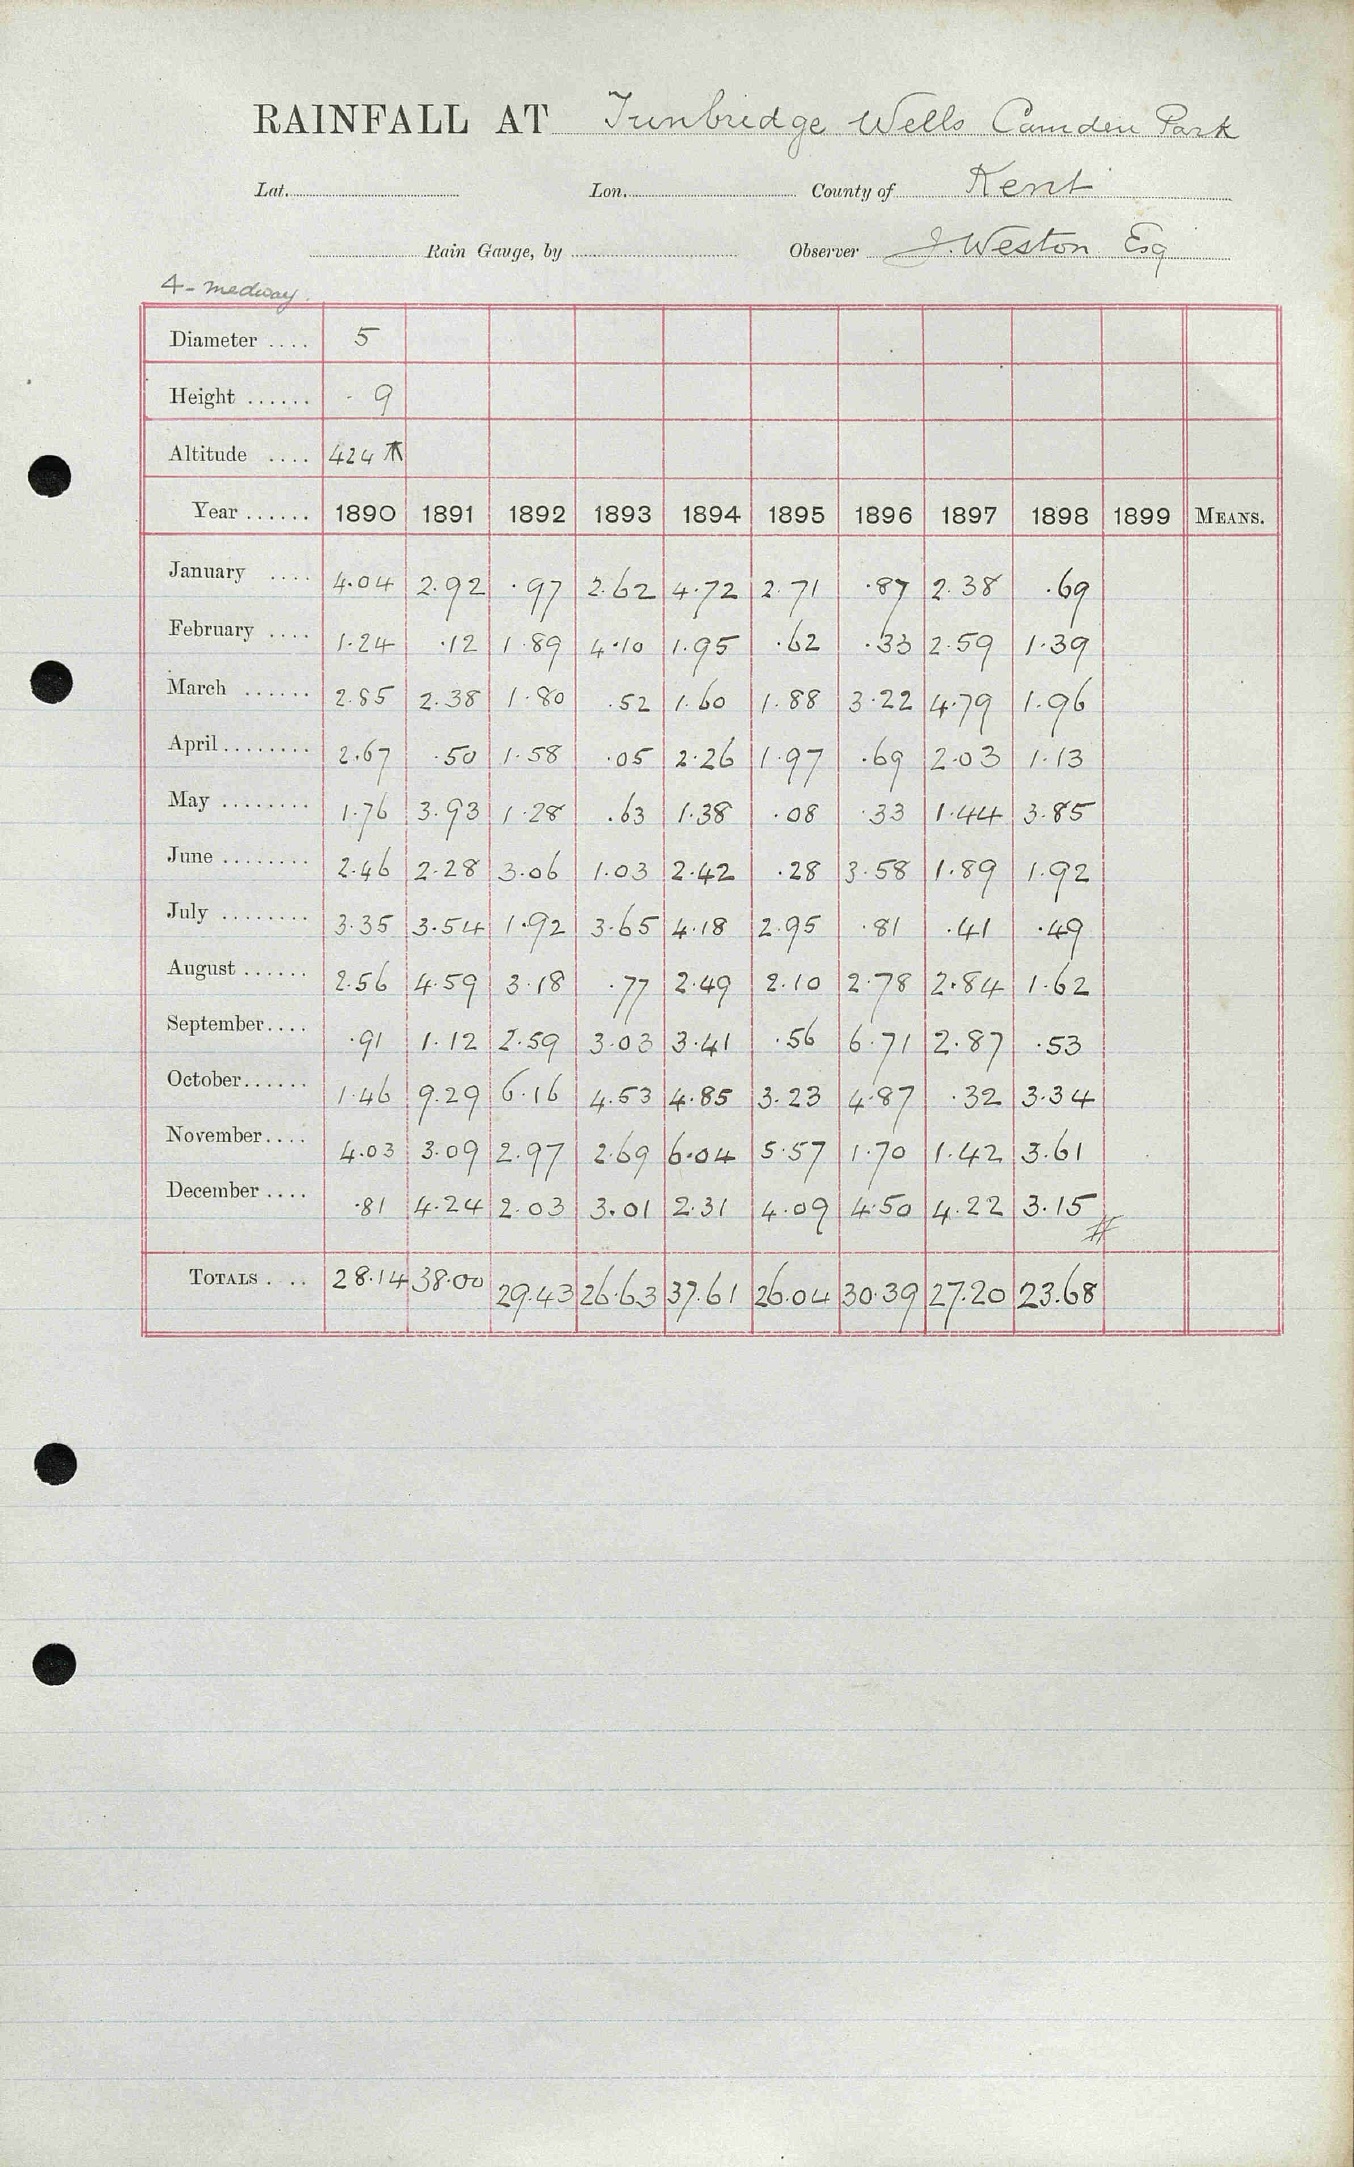 RAINFALL AT Tunbridge Wells Camden Park
Lat. Lon. County of Kent
Rain Gauge, by Observer J. Weston Esq
4 - medway.
Diameter .... 5
Height ...... - 9
Altitude .... 424
Year ...... 1890 1891 1892 1893 1894 1895 1896 1897 1898 1899 MEANS.
January .... 4.04 2.92 .97 2.62 4.72 2.71 .87 2.38 .69
February .... 1.24 .12 1.89 4.10 1.95 .62 .33 2.59 1.39
March ...... 2.85 2.38 1.80 .52 1.60 1.88 3.22 4.79 1.96
April ........ 2.67 .50 1.58 .05 2.26 1.97 .69 2.03 1.13
May ........ 1.76 3.93 1.28 .63 1.38 .08 .33 1.44 3.85
June ........ 2.46 2.28 3.06 1.03 2.42 .28 3.58 1.89 1.92
July ........ 3.35 3.54 1.92 3.65 4.18 2.95 .81 .41 .49
August ...... 2.56 4.59 3.18 .77 2.49 2.10 2.78 2.84 1.62
September .... .91 1.12 2.59 3.03 3.41 .56 6.71 2.87 .53
October ...... 1.46 9.29 6.16 4.53 4.85 3.23 4.87 .32 3.34
November .... 4.03 3.09 2.97 2.69 6.04 5.57 1.70 1.42 3.61
December .... .81 4.24 2.03 3.01 2.31 4.09 4.50 4.22 3.15
TOTALS . .. 28.14 38.00 29.43 26.63 37.61 26.04 30.39 27.20 23.68